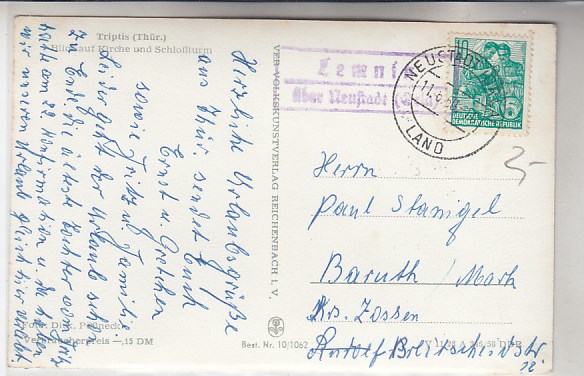 Triptis (Thür.)
Blick auf Kirche und Schloßturm
Herzliche Urlaubsgrüße
aus Thür. sendet Euch
Ernst u. Gretchen
sowie Fritz u. Familie
Leider geht der Urlaub schon
zu Ende die älteste Tochter vom Fritz
hatte am 22. Konfirmation u. da haben
wir unseren Urlaub gleich hier verlebt
Foto: Dick, Pößneck
Verbraucherpreis —,15 DM
VEB VOLKSKUNSTVERLAG REICHENBACH i. V.
Best. Nr. 10/1062
Lemni
über Neustadt
NEUSTADT
LAND
10
DEUTSCHE
DEMOKRATISCHE REPUBLIK
5,-
Herrn
Paul Stanigel
Baruth / Mark
Krs. Zossen
Rudolf-Breitscheidstr
22
DDR